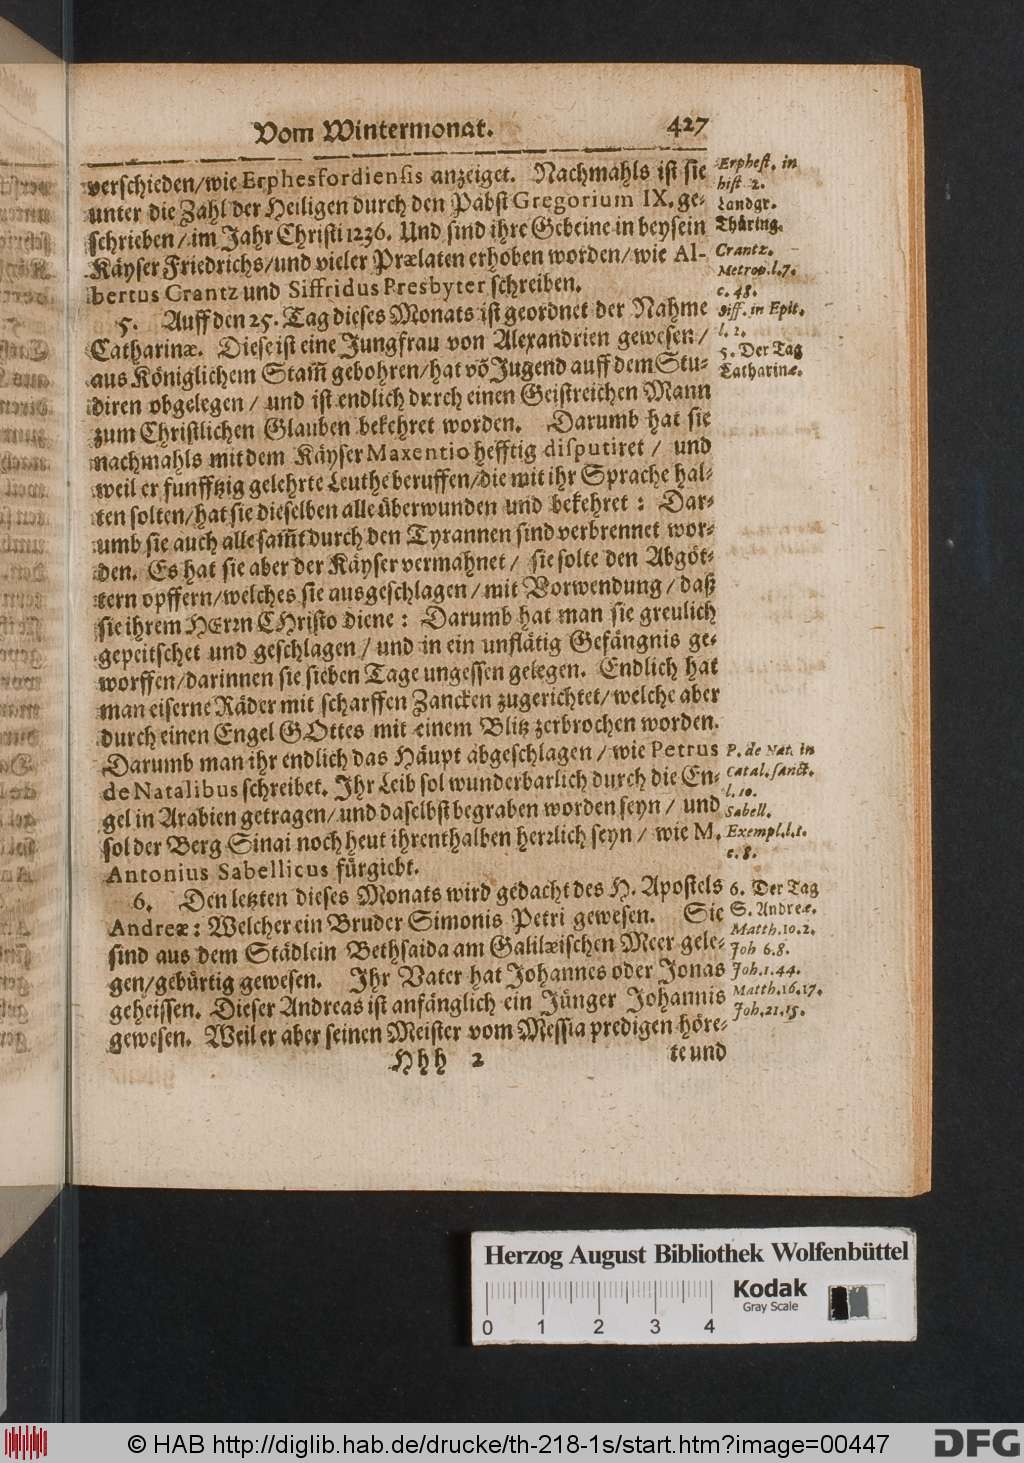 Vom Wintermonat. 427
verschieden/wie Erphesfordiensis anzeiget. Nachmahls ist sie
unter die Zahl der Heiligen durch den Pabst Gregorium IX. ge-
schrieben/im Jahr Christi 1236. Und sind ihre Gebeine in beysein
Käyser Friedrichs/und vieler Prælaten erhoben worden/wie Al-
bertus Crantz und Siffridus Presbyter schreiben.
5. Auff den 25. Tag dieses Monats ist geordnet der Nahme
Catharinæ. Diese ist eine Jungfrau von Alexandrien gewesen/
aus Königlichem Stam̃ gebohren/hat võ Jugend auff dem Stu-
diren obgelegen/ und ist endlich durch einen Geistreichen Mann
zum Christlichen Glauben bekehret worden. Darumb hat sie
nachmahls mit dem Käyser Maxentio hefftig disputiret/ und
weil er funfftzig gelehrte Leuthe beruffen/die mit ihr Sprache hal-
ten solten/hat sie dieselben alle überwunden und bekehret: Dar-
umb sie auch alle sam̃t durch den Tyrannen sind verbrennet wor-
den. Es hat sie aber der Käyser vermahnet/ sie solte den Abgöt-
tern opffern/welches sie ausgeschlagen/mit Vorwendung/daß
sie ihrem HErrn CHristo diene: Darumb hat man sie greulich
gepeitschet und geschlagen/und in ein unflätig Gefängnis ge-
worffen/darinnen sie sieben Tage ungessen gelegen. Endlich hat
man eiserne Räder mit scharffen Zancken zugerichtet/welche aber
durch einen Engel GOttes mit einem Blitz zerbrochen worden.
Darumb man ihr endlich das Häupt abgeschlagen/wie Petrus
de Natalibus schreibet. Ihr Leib sol wunderbarlich durch die En-
gel in Arabien getragen/und daselbst begraben worden seyn/ und
sol der Berg Sinai noch heut ihrenthalben herrlich seyn/ wie M.
Antonius Sabellicus fürgiebt.
6. Den letzten dieses Monats wird gedacht des H. Apostels
Andreæ: Welcher ein Bruder Simonis Petri gewesen. Sie
sind aus dem Städlein Bethsaida am Galilæischen Meer gele-
gen/gebürtig gewesen. Ihr Vater hat Johannes oder Jonas
geheissen. Dieser Andreas ist anfänglich ein Jünger Johannis
gewesen. Weil er aber seinen Meister vom Messia predigen höre-
Hhh 2 te und
Erphesf. in
hist 2.
Landgr.
Thüring.
Crantz.
Metrop.l.7.
c. 48.
Siff. in Epit.
l. 2.
5. Der Tag
Catharinæ.
P. de Nat. in
Catal. sanct.
l. 10.
Sabell.
Exempl.l.1.
c. 8.
6. Der Tag
S. Andreæ.
Matth.10.2.
Joh 6.8.
Joh.1.44.
Matth.16.17.
Joh.21.15.
Herzog August Bibliothek Wolfenbüttel
Kodak
Gray Scale
0 1 2 3 4
© HAB http://diglib.hab.de/drucke/th-218-1s/start.htm?image=00447
DFG